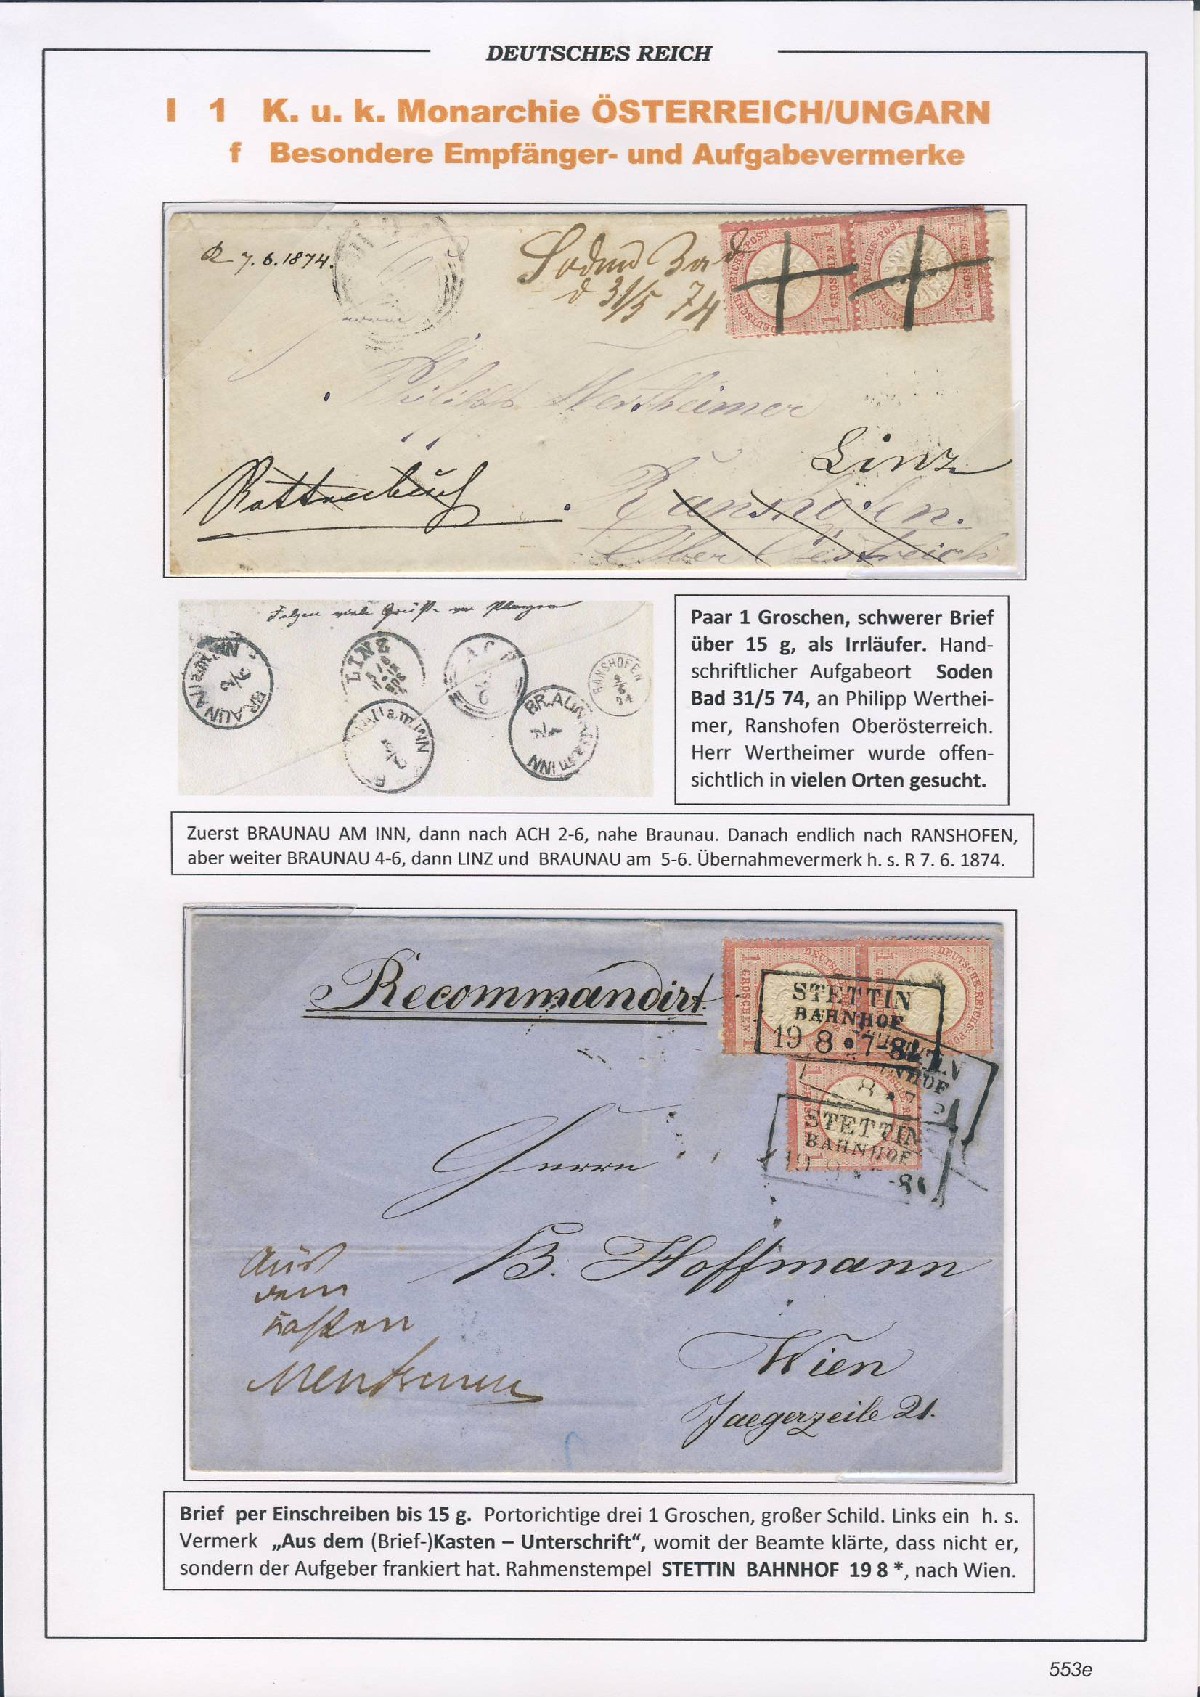 DEUTSCHES REICH
I 1 K. u. k. Monarchie ÖSTERREICH/UNGARN
f Besondere Empfänger- und Aufgabevermerke
R 7.6.1874.
Soden Bad
d 31/5 74
Philipp Wertheimer
Linz
Ranshofen.
Ober Oestreich
BRAUNAU am INN
LINZ
ACH
RANSHOFEN
BRAUNAU am INN
Paar 1 Groschen, schwerer Brief
über 15 g, als Irrläufer. Hand-
schriftlicher Aufgabeort Soden
Bad 31/5 74, an Philipp Werthei-
mer, Ranshofen Oberösterreich.
Herr Wertheimer wurde offen-
sichtlich in vielen Orten gesucht.
Zuerst BRAUNAU AM INN, dann nach ACH 2-6, nahe Braunau. Danach endlich nach RANSHOFEN,
aber weiter BRAUNAU 4-6, dann LINZ und BRAUNAU am 5-6. Übernahmevermerk h. s. R 7. 6. 1874.
Recommandirt
STETTIN
BAHNHOF
19 8 * 7-8
STETTIN
BAHNHOF
Herrn
B. Hoffmann
Wien
Jaegerzeile 21.
Aus
dem
Kasten
Brief per Einschreiben bis 15 g. Portorichtige drei 1 Groschen, großer Schild. Links ein h. s.
Vermerk „Aus dem (Brief-)Kasten – Unterschrift“, womit der Beamte klärte, dass nicht er,
sondern der Aufgeber frankiert hat. Rahmenstempel STETTIN BAHNHOF 19 8 *, nach Wien.
553e